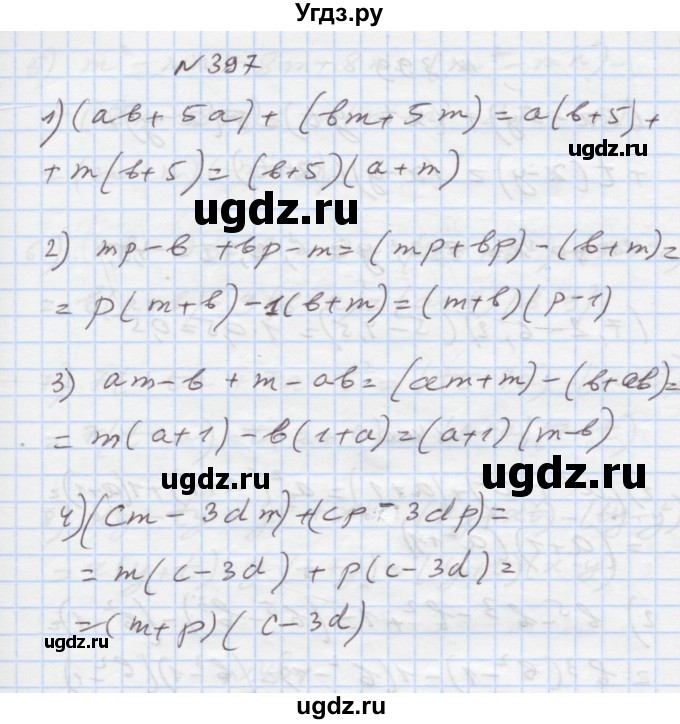 Угдз.ру
N 397
1) (ab + 5a) + (bm + 5m) = a(b+5) +
ugdz.ru
+ m(b+5) = (b+5)(a+m)
ugdz.ru
2) mp - b + bp - m = (mp + bp) - (b+m) =
= p(m+b) - 1(b+m) = (m+b)(p-1)
3) am - b + m - ab = (am+m) - (b+ab) =
= m(a+1) - b(1+a) = (a+1)(m-b)
ugdz.ru
ugdz.ru
4) (cm - 3dm) + (cp - 3dp) =
= m(c-3d) + p(c-3d) =
= (m+p)(c-3d)
ugdz.ru
ugdz.ru
ugdz.ru